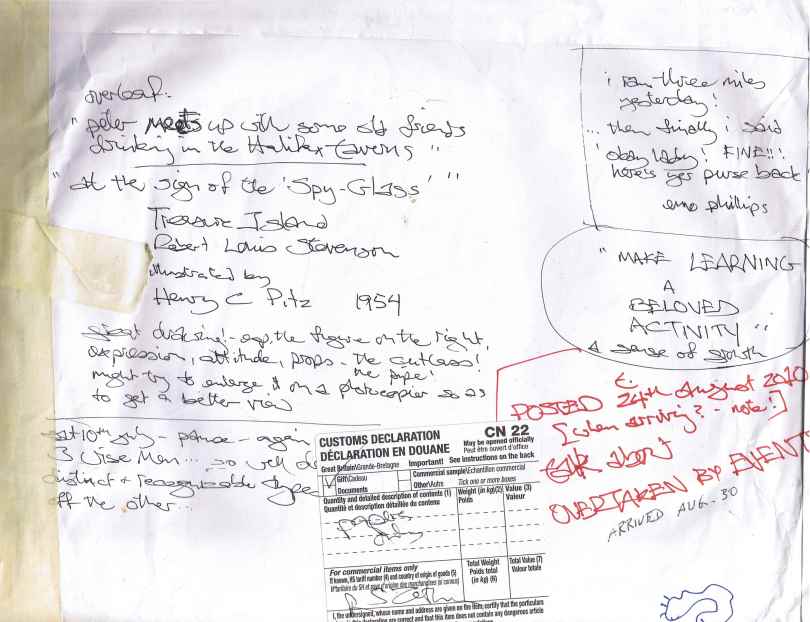 overleaf:
" peter meets up with some old friends
drinking in the Halifax taverns "
" at the sign of the 'Spy-Glass' "
Treasure Island
Robert Louis Stevenson
illustrated by
Henry C Pitz 1954
great the figure on the right,
expression, attitude, props - the cutlass!
the pipe!
might try to enlarge it on a photocopier so as
to get a better view
sat 10th july - again
3 Wise Men... so well
distinct + recognizable
off the other...
i ran three miles
yesterday!
... then finally i said
'okay lady! FINE!!!
here's yer purse back
emo phillips
" MAKE LEARNING
A
BELOVED
ACTIVITY "
a sense of growth
POSTED 24th August 2010
[when arriving? - note!]
talk about
OVERTAKEN BY EVENTS
ARRIVED AUG. 30
CUSTOMS DECLARATION CN 22
DÉCLARATION EN DOUANE May be opened officially
Peut être ouvert d'office
Great Britain\Grande-Bretagne Important! See instructions on the back
Gift\Cadeau Commercial sample\Echantillon commercial
Documents Other\Autre Tick one or more boxes
Quantity and detailed description of contents (1) Weight (in kg)(2) Value (3)
Quantité et description détaillée du contenu Poids Valeur
For commercial items only Total Weight Total Value (7)
If known, HS tariff number (4) and country of origin of goods (5) Poids total Valeur totale
N°tarifaire du SH et pays d'origine des marchandises (si connus) (in kg) (6)
I, the undersigned, whose name and address are given on the item, certify that the particulars
this declaration are correct and that this item does not contain any dangerous article